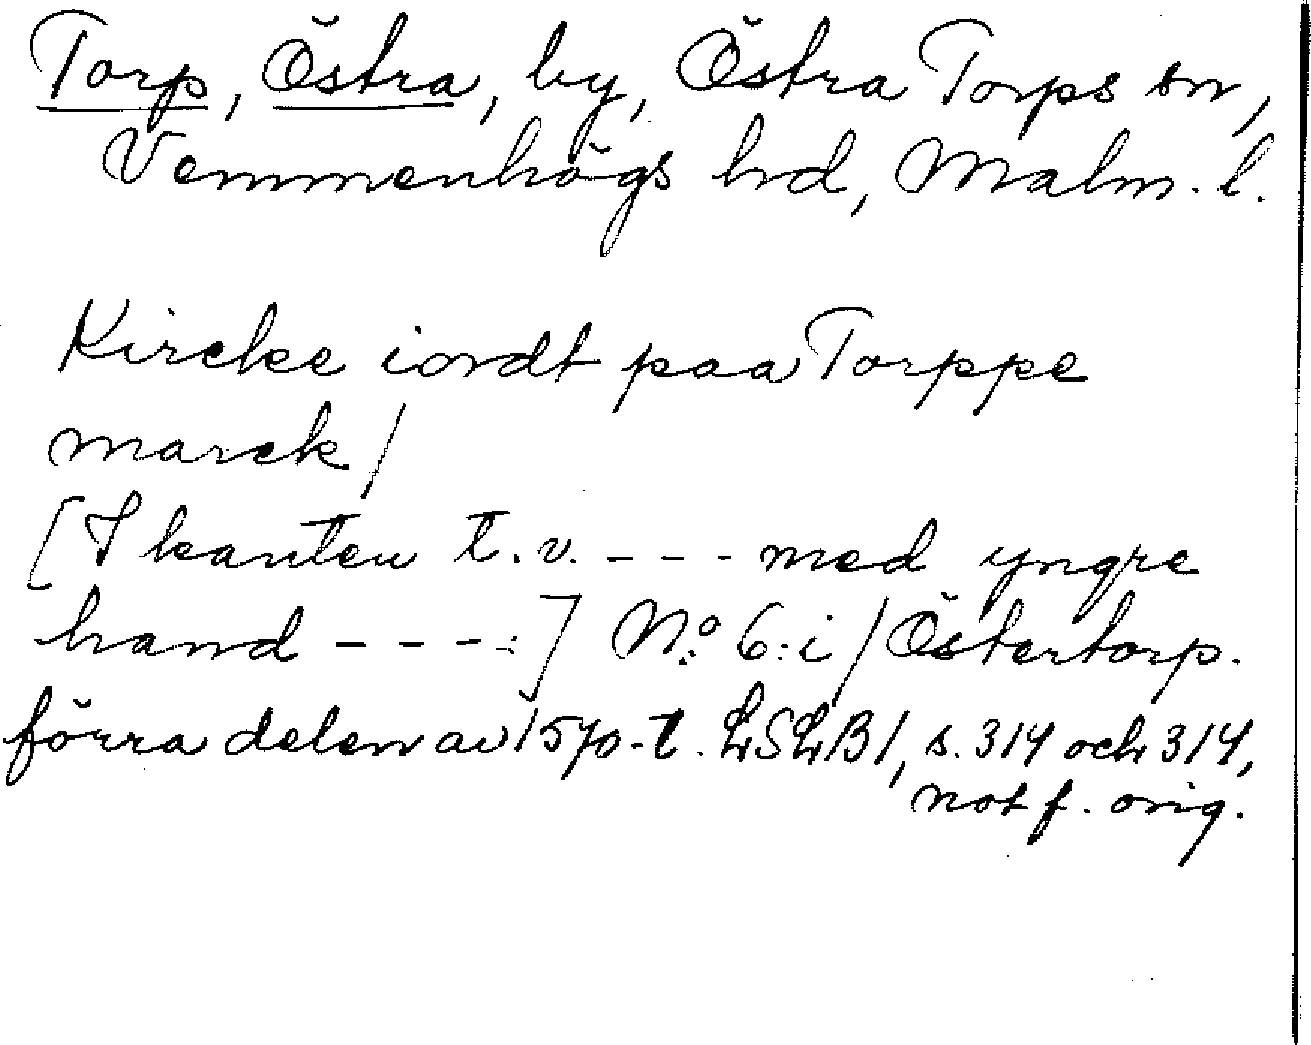 Torp, Östra, by, Östra Torps sn,
Vemmenhögs hrd, Malm. l.
Kircke iordt paa Torppe
marck/
[I kanten t.v. --- med yngre
hand ---:] No 6:i/Östertorp.
förra delen av 1570-t. LSLB1, s. 314 och 314,
not f. orig.